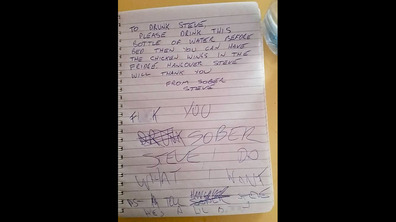 TO DRUNK STEVE,
PLEASE DRINK THIS
BOTTLE OF WATER BEFORE
BED THEN YOU CAN HAVE
THE CHICKEN WINGS IN THE
FRIDGE. HANGOVER STEVE
WILL THANK YOU
FROM SOBER
STEVE
YOU
SOBER
STEVE DO
WHAT I WANT
HANGOVER STEVE